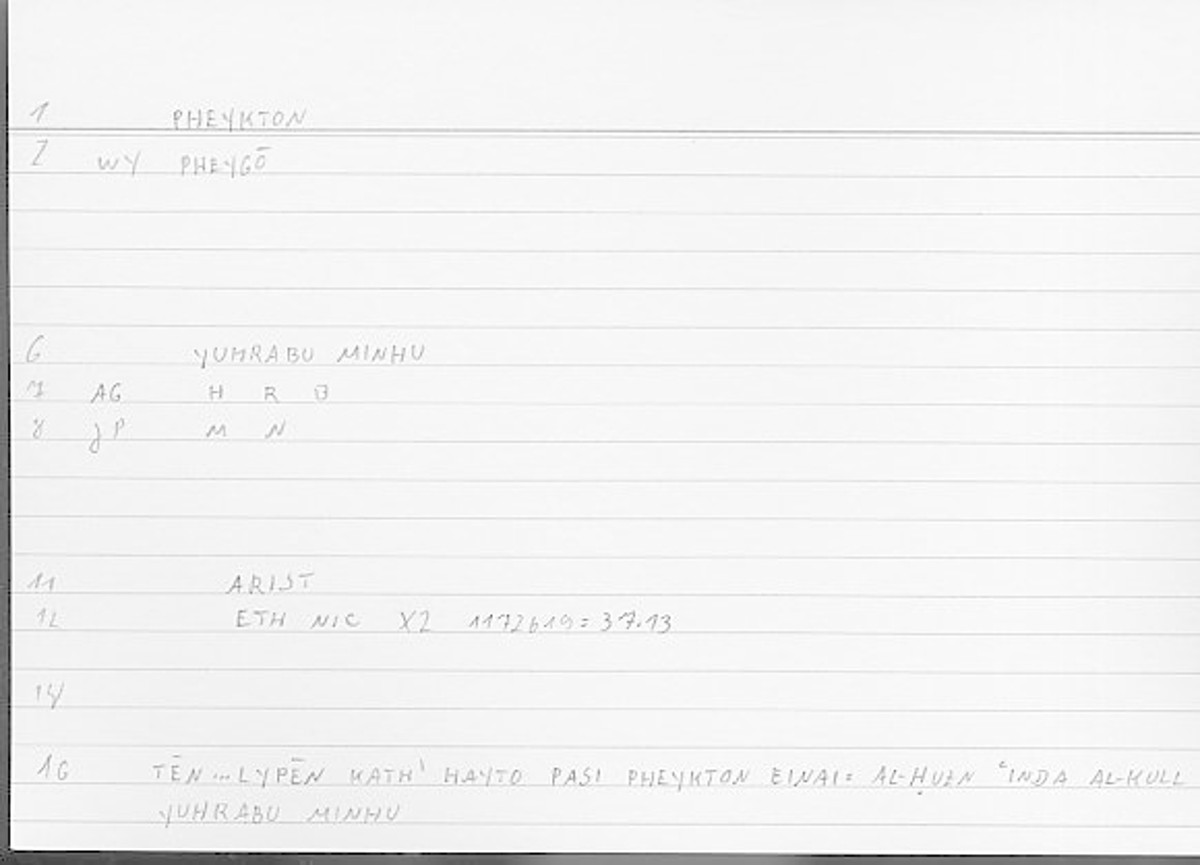 1 PHEYKTON
2 WY PHEYGŌ
6 YUHRABU MINHU
7 AG H R B
8 JP M N
11 ARIST
12 ETH NIC X2 1172b19 = 37.13
14
16 TĒN...LYPĒN KATH' HAYTO PASI PHEYKTON EINAI = AL-ḤUZN ʿINDA AL-KULL
YUHRABU MINHU